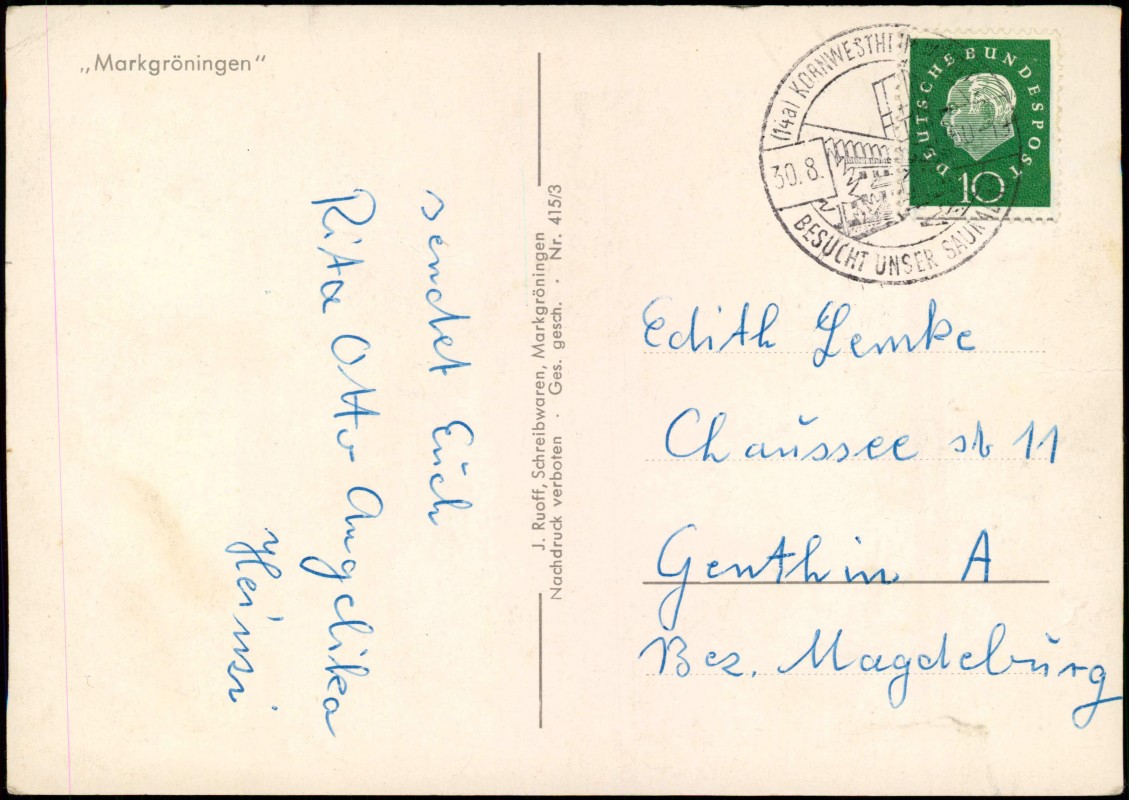 „Markgröningen“
sendet Euch
Rita Otto Angelika
Heinzi
J. Ruoff, Schreibwaren, Markgröningen
Nachdruck verboten · Ges. gesch. · Nr. 415/3
(14a) KORNWESTHEIM
30.8.
BESUCHT UNSER
DEUTSCHE BUNDESPOST
10
Edith Lemke
Chaussee str 11
Genthin A
Bez. Magdeburg